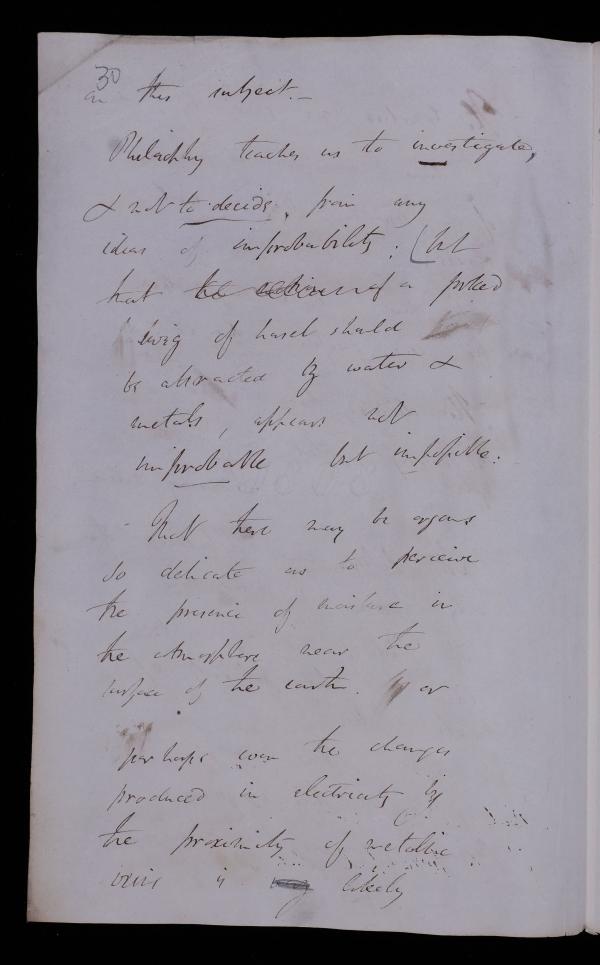 30
on this subject. —
Philosophy teaches us to investigate,
& not to decide, from any
ideas of improbability; (but
that the action of a forked
twig of hasel should
be attracted by water &
metals, appears not
improbable but impossible.
- That there may be organs
so delicate as to perceive
the presence of moisture in
the atmosphere near the
surface of the earth. or
perhaps even the changes
produced in electricity by
the proximity of metallic
veins is likely